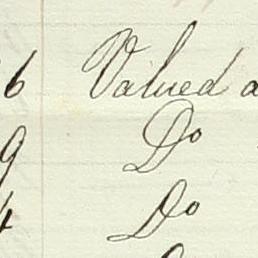 6 Valued a
9 Do
4 Do